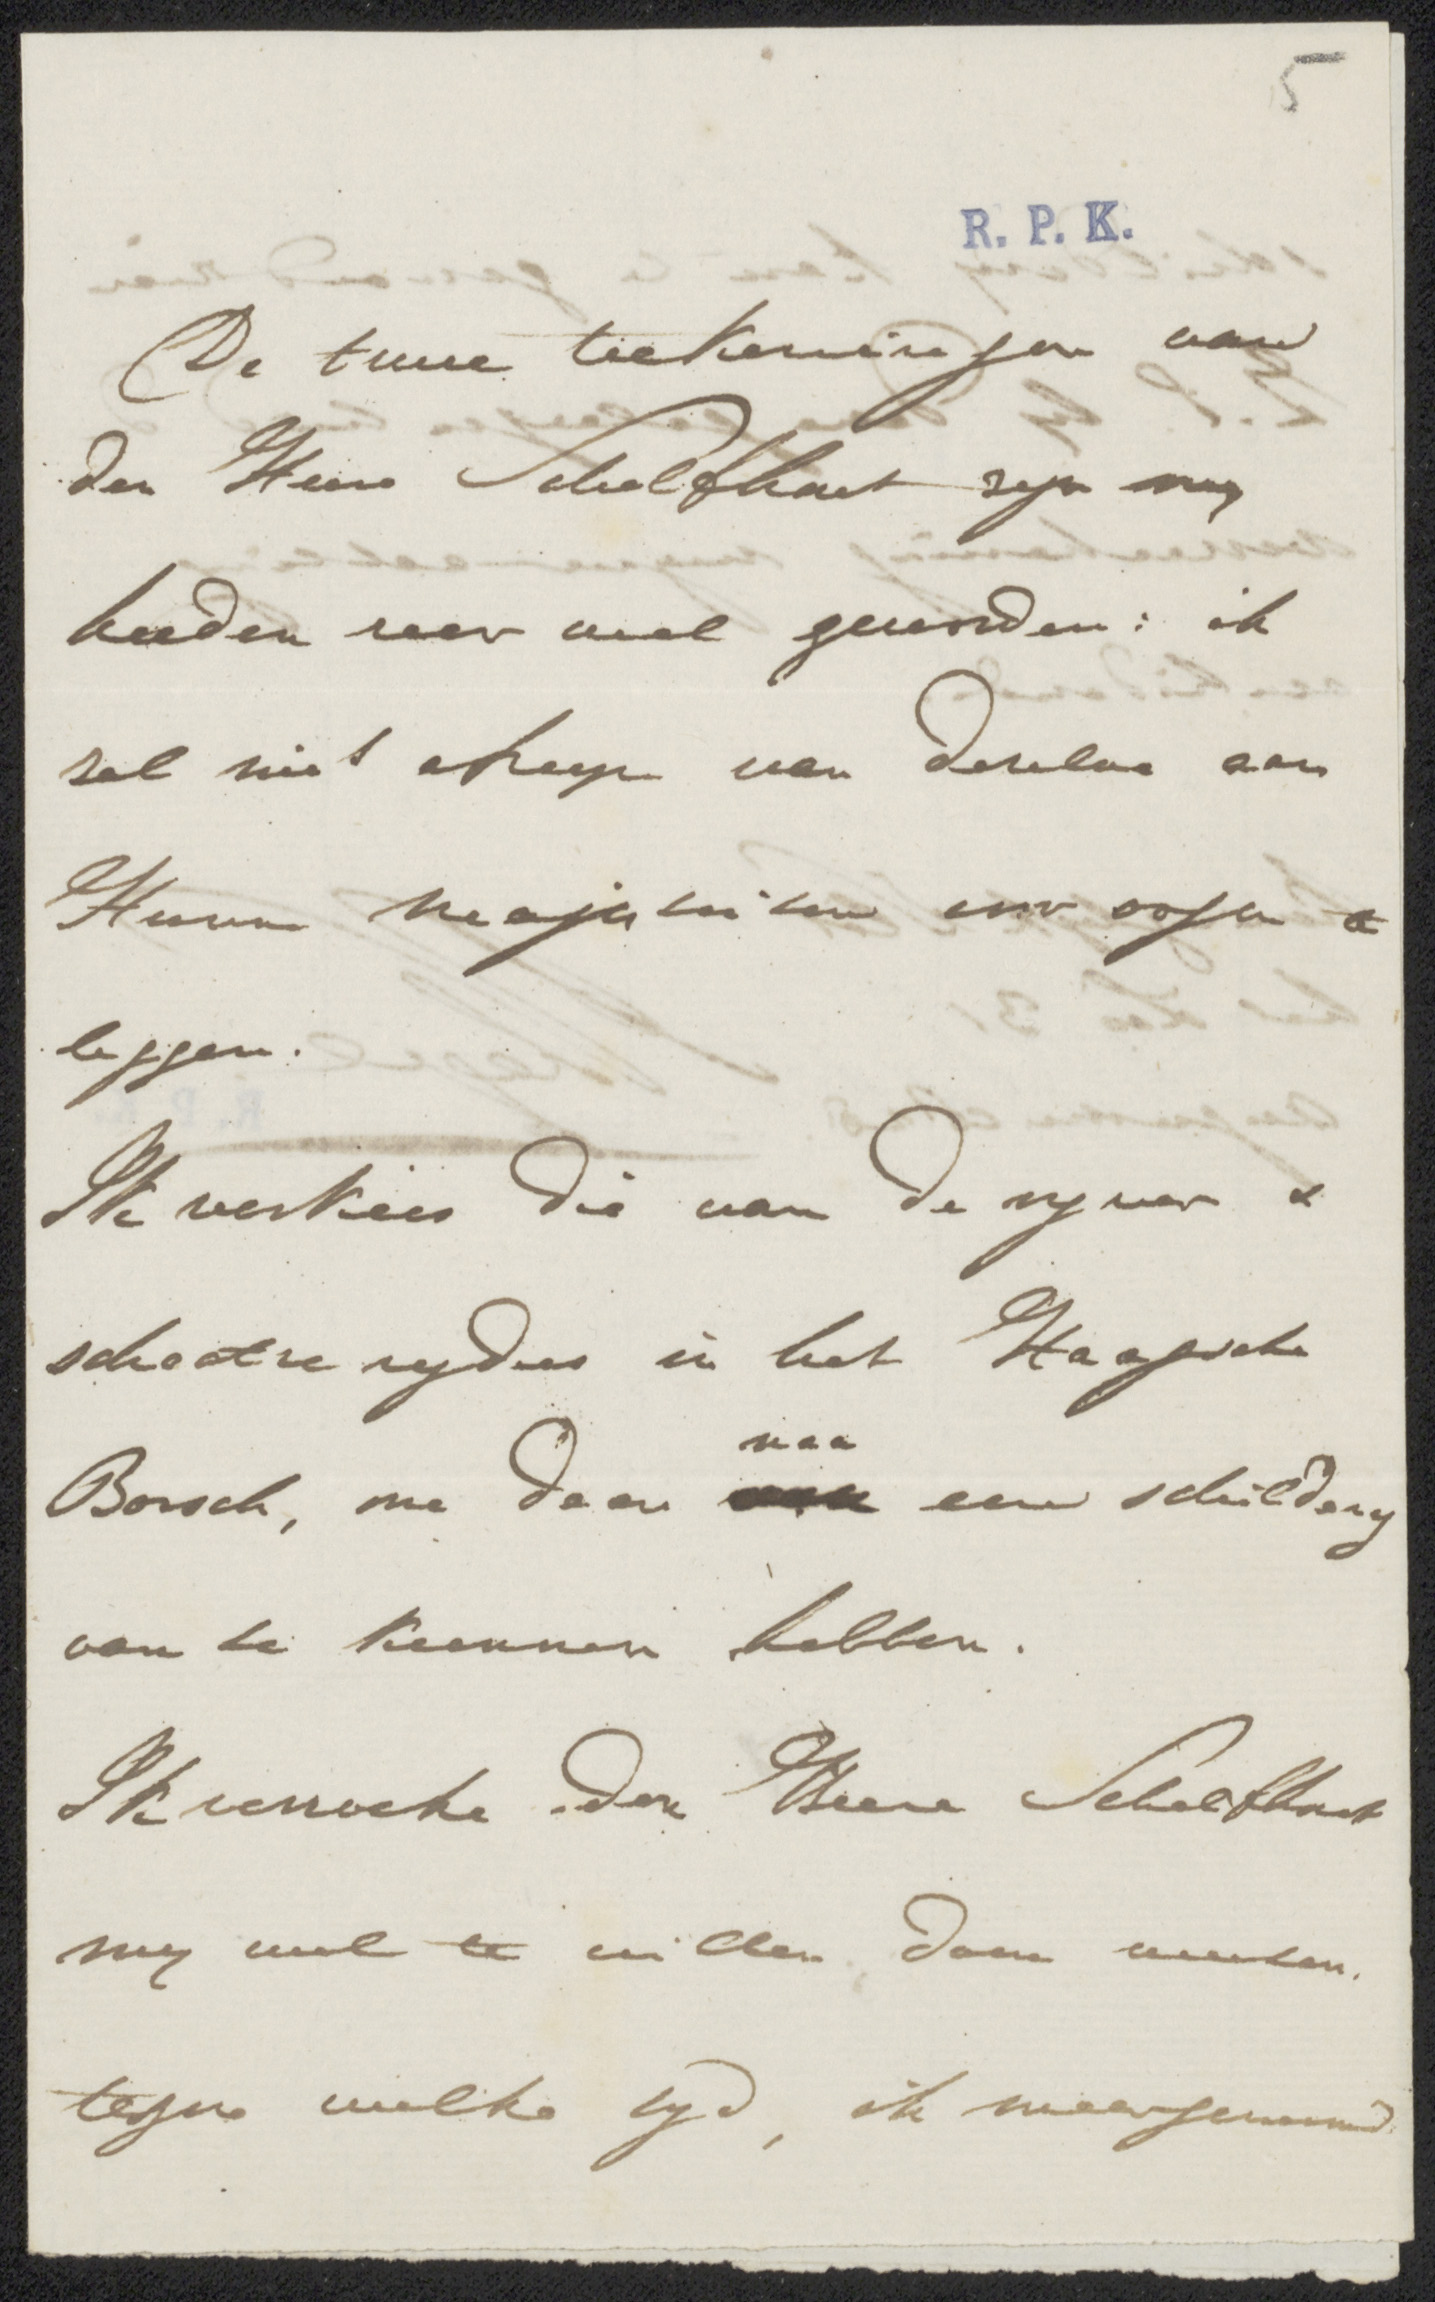 5
R. P. K.
De twee teekeningen van
den Heere Schelfhout zyn my
heeden zeer wel geworden: ik
zal niet
van dezelve aan
Hunne Majesteiten voor oogen te
leggen.
Ik verkies die van de vyver &
schaatze ryders in het Haagsche
Bosch, me daar naa een schildery
van te kunnen hebben.
Ik verzoeke den Heere Schelfhout
my wel te willen doen weeten.
tegen welke tyd, ik meergenoemd